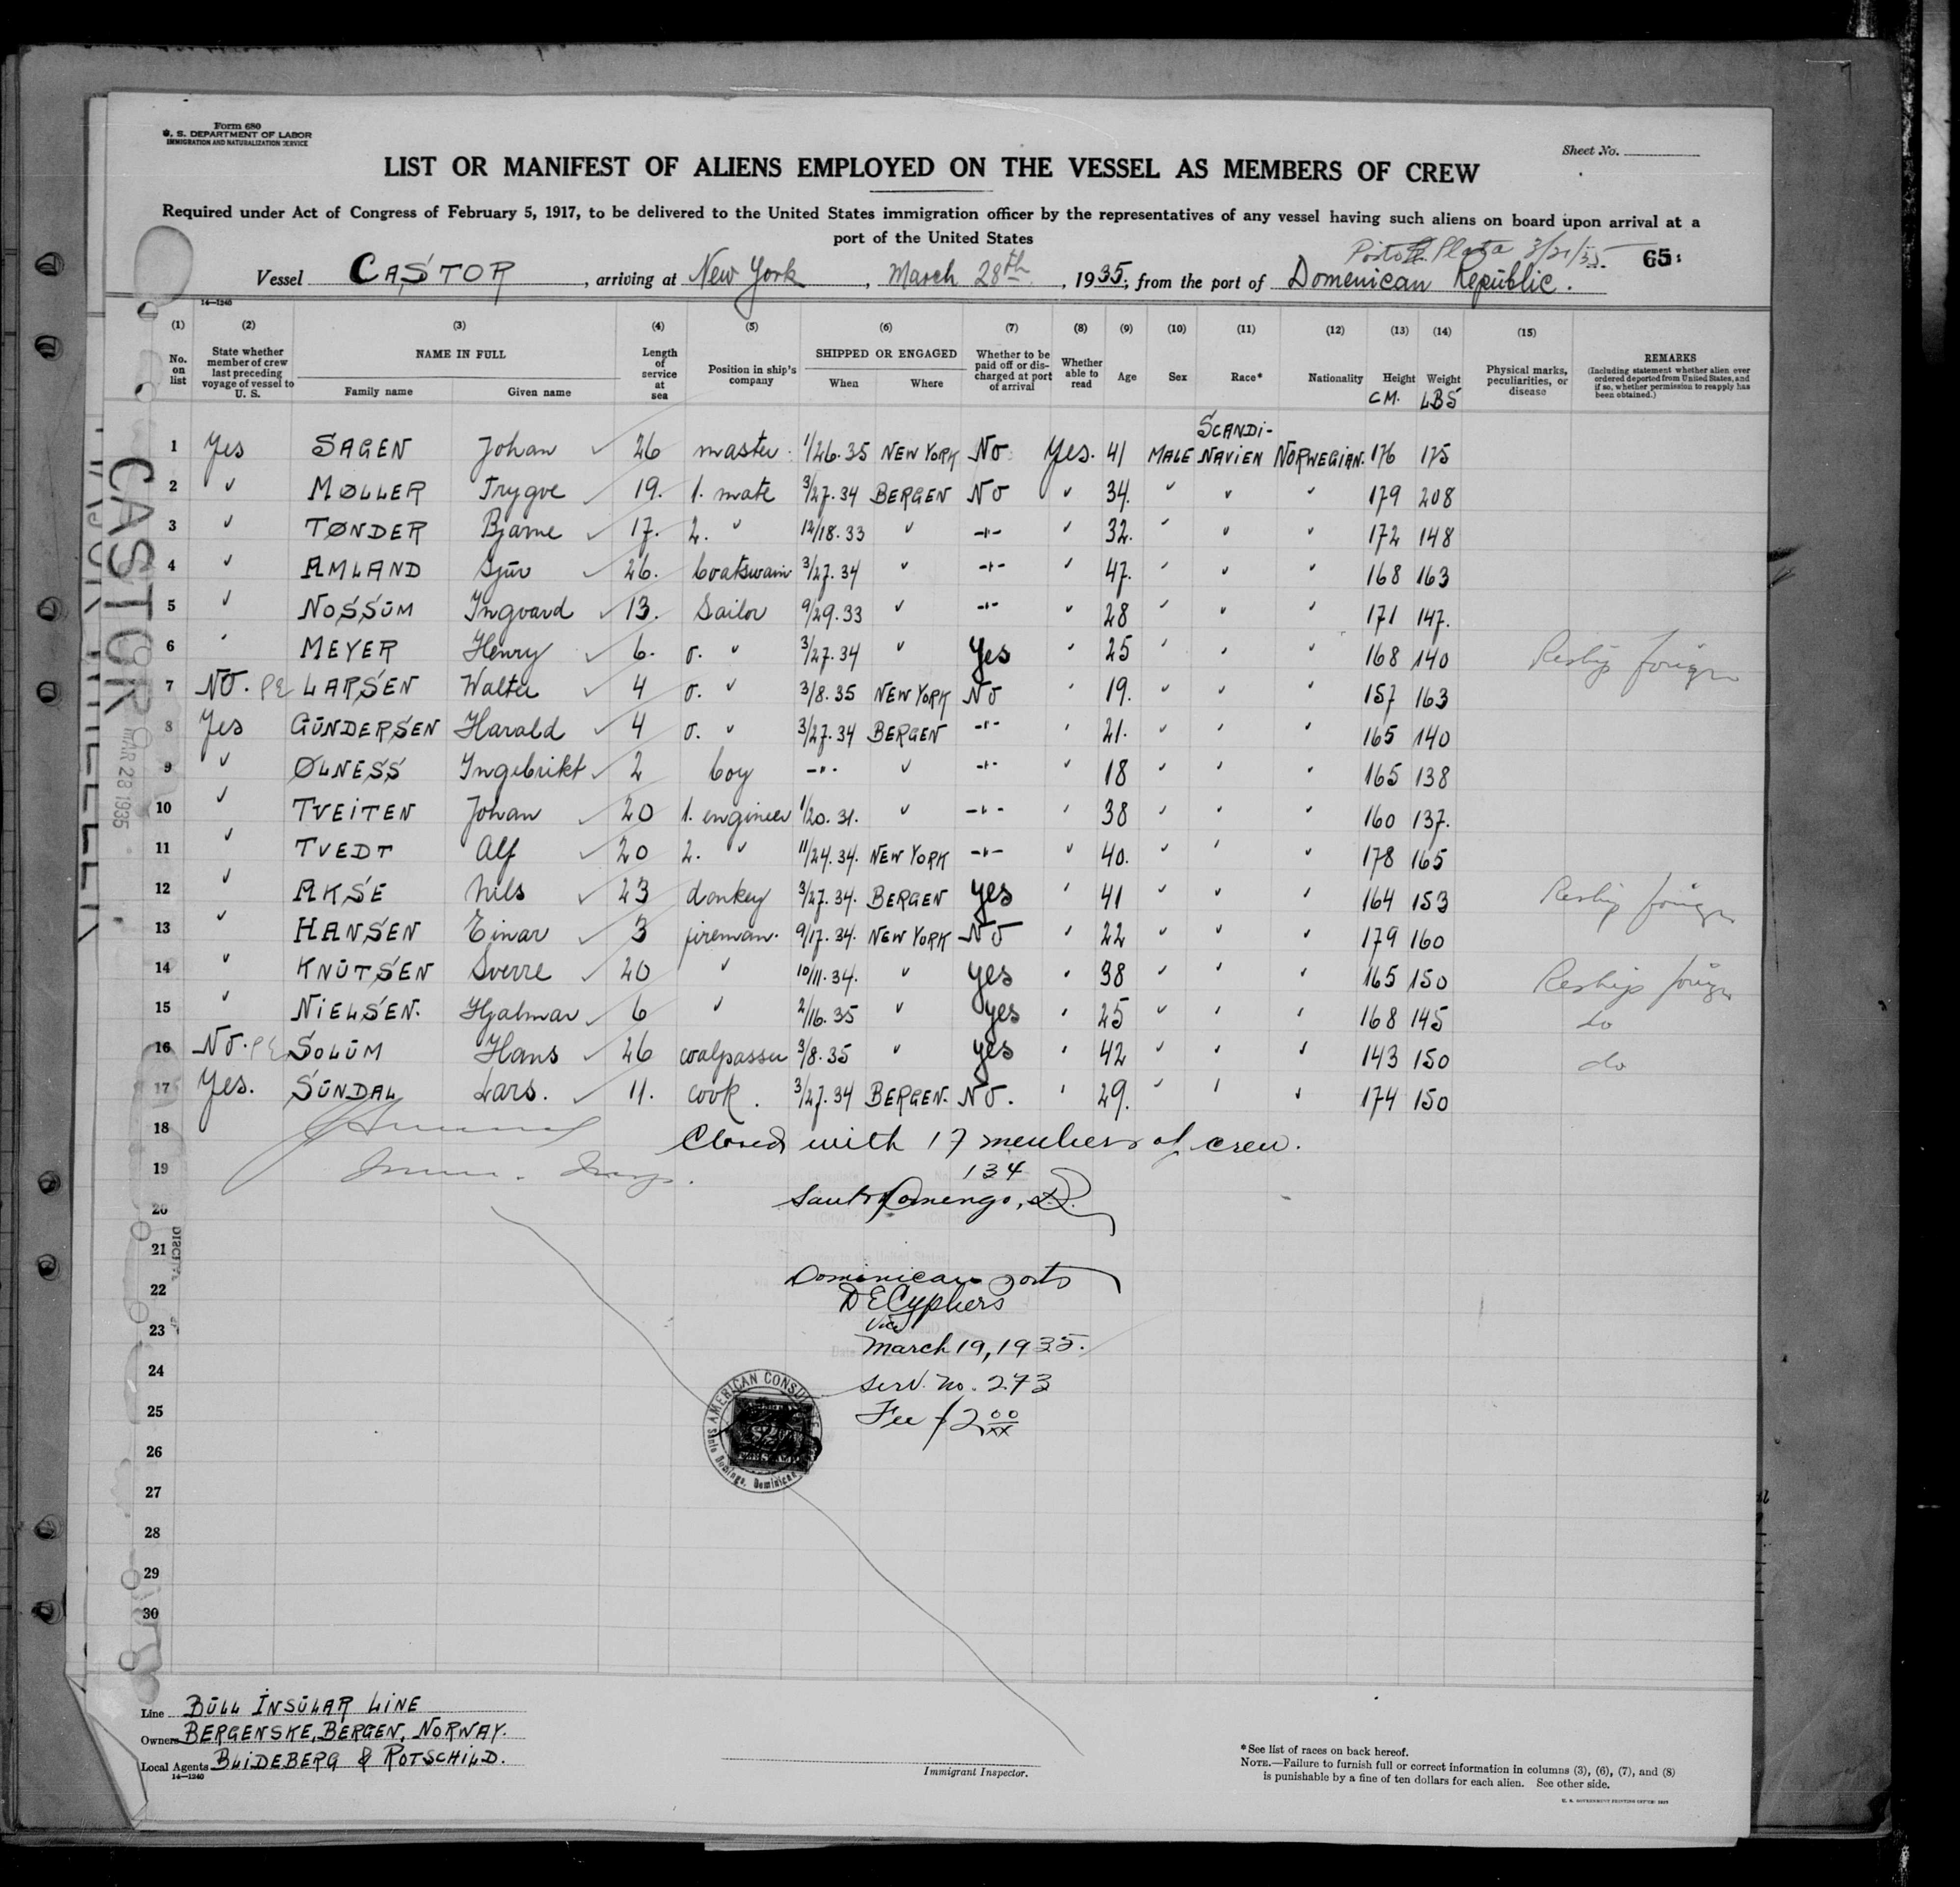 Form 680
U. S. DEPARTMENT OF LABOR
IMMIGRATION AND NATURALIZATION SERVICE
Sheet No.
LIST OR MANIFEST OF ALIENS EMPLOYED ON THE VESSEL AS MEMBERS OF CREW
Required under Act of Congress of February 5, 1917, to be delivered to the United States immigration officer by the representatives of any vessel having such aliens on board upon arrival at a
port of the United States
Plata 3/21/35. 65
Vessel CASTOR, arriving at New York, March 28th, 1935, from the port of Domenican Republic.
14—1240
(1) (2) (3) (4) (5) (6) (7) (8) (9) (10) (11) (12) (13) (14) (15)
No. on list State whether member of crew last preceding voyage of vessel to U. S. NAME IN FULL Family name Given name Length of service at sea Position in ship's company SHIPPED OR ENGAGED When Where Whether to be paid off or discharged at port of arrival Whether able to read Age Sex Race* Nationality Height CM. Weight LBS Physical marks, peculiarities, or disease REMARKS (Including statement whether alien ever ordered deported from United States, and if so, whether permission to reapply has been obtained.)
1 Yes SAGEN Johan 26 master 1/26.35 NEW YORK No Yes. 41 MALE SCANDI-NAVIEN NORWEGIAN. 176 175
2 " MØLLER Trygve 19. 1. mate 3/27.34 BERGEN No " 34. " " " 179 208
3 " TØNDER Bjarne 17. 2. " 12/18.33 " -"- " 32. " " " 172 148
4 " AMLAND Sjur 26. boatswain 3/27.34 " -"- " 47. " " " 168 163
5 " NOSSUM Ingvard 13. Sailor 9/29.33 " -"- " 28 " " " 171 147.
6 " MEYER Henry 6. o. " 3/27.34 " Yes " 25 " " " 168 140 Reship foreign
7 No. PE LARSEN Walter 4 o. " 3/8.35 NEW YORK No " 19. " " " 157 163
8 Yes GUNDERSEN Harald 4 o. " 3/27.34 BERGEN -"- " 21. " " " 165 140
9 " ØLNESS Ingebrikt 2 boy -"- " -"- " 18 " " " 165 138
10 " TVEITEN Johan 20 1. engineer 1/20.31. " -"- " 38 " " " 160 137.
11 " TVEDT Alf 20 2. " 11/24.34. NEW YORK -"- " 40. " " " 178 165
12 " AKSE Nils 23 donkey 3/27.34. BERGEN yes " 41 " " " 164 153 Reship foreign
13 " HANSEN Einar 3 fireman. 9/17.34. NEW YORK No " 22 " " " 179 160
14 " KNUTSEN Sverre 20 " 10/11.34. " yes " 38 " " " 165 150 Reship foreign
15 " NIELSEN. Hjalmar 6 " 2/16.35 " yes " 25 " " " 168 145 do
16 No. PE SOLUM Hans 26 coalpasser 3/8.35 " yes " 42 " " " 143 150 do
17 Yes. SUNDAL Lars. 11. cook. 3/27.34 BERGEN. No. " 29. " " " 174 150
18 Closed with 17 members of crew.
19 134
20 Santo Domingo, D.R.
21
22 Dominican ports
D E Cyphers
23 Vice
March 19, 1935.
24 Serv. No. 273
25 Fee $2 00/xx
26
27
28
29
30
AMERICAN CONSULATE
Santo Domingo, Dominican
CASTOR
MAR 28 1935
Line BULL INSULAR LINE
Owners BERGENSKE, BERGEN, NORWAY.
Local Agents BLIDEBERG & ROTSCHILD.
14—1240
Immigrant Inspector.
*See list of races on back hereof.
NOTE.—Failure to furnish full or correct information in columns (3), (6), (7), and (8)
is punishable by a fine of ten dollars for each alien. See other side.